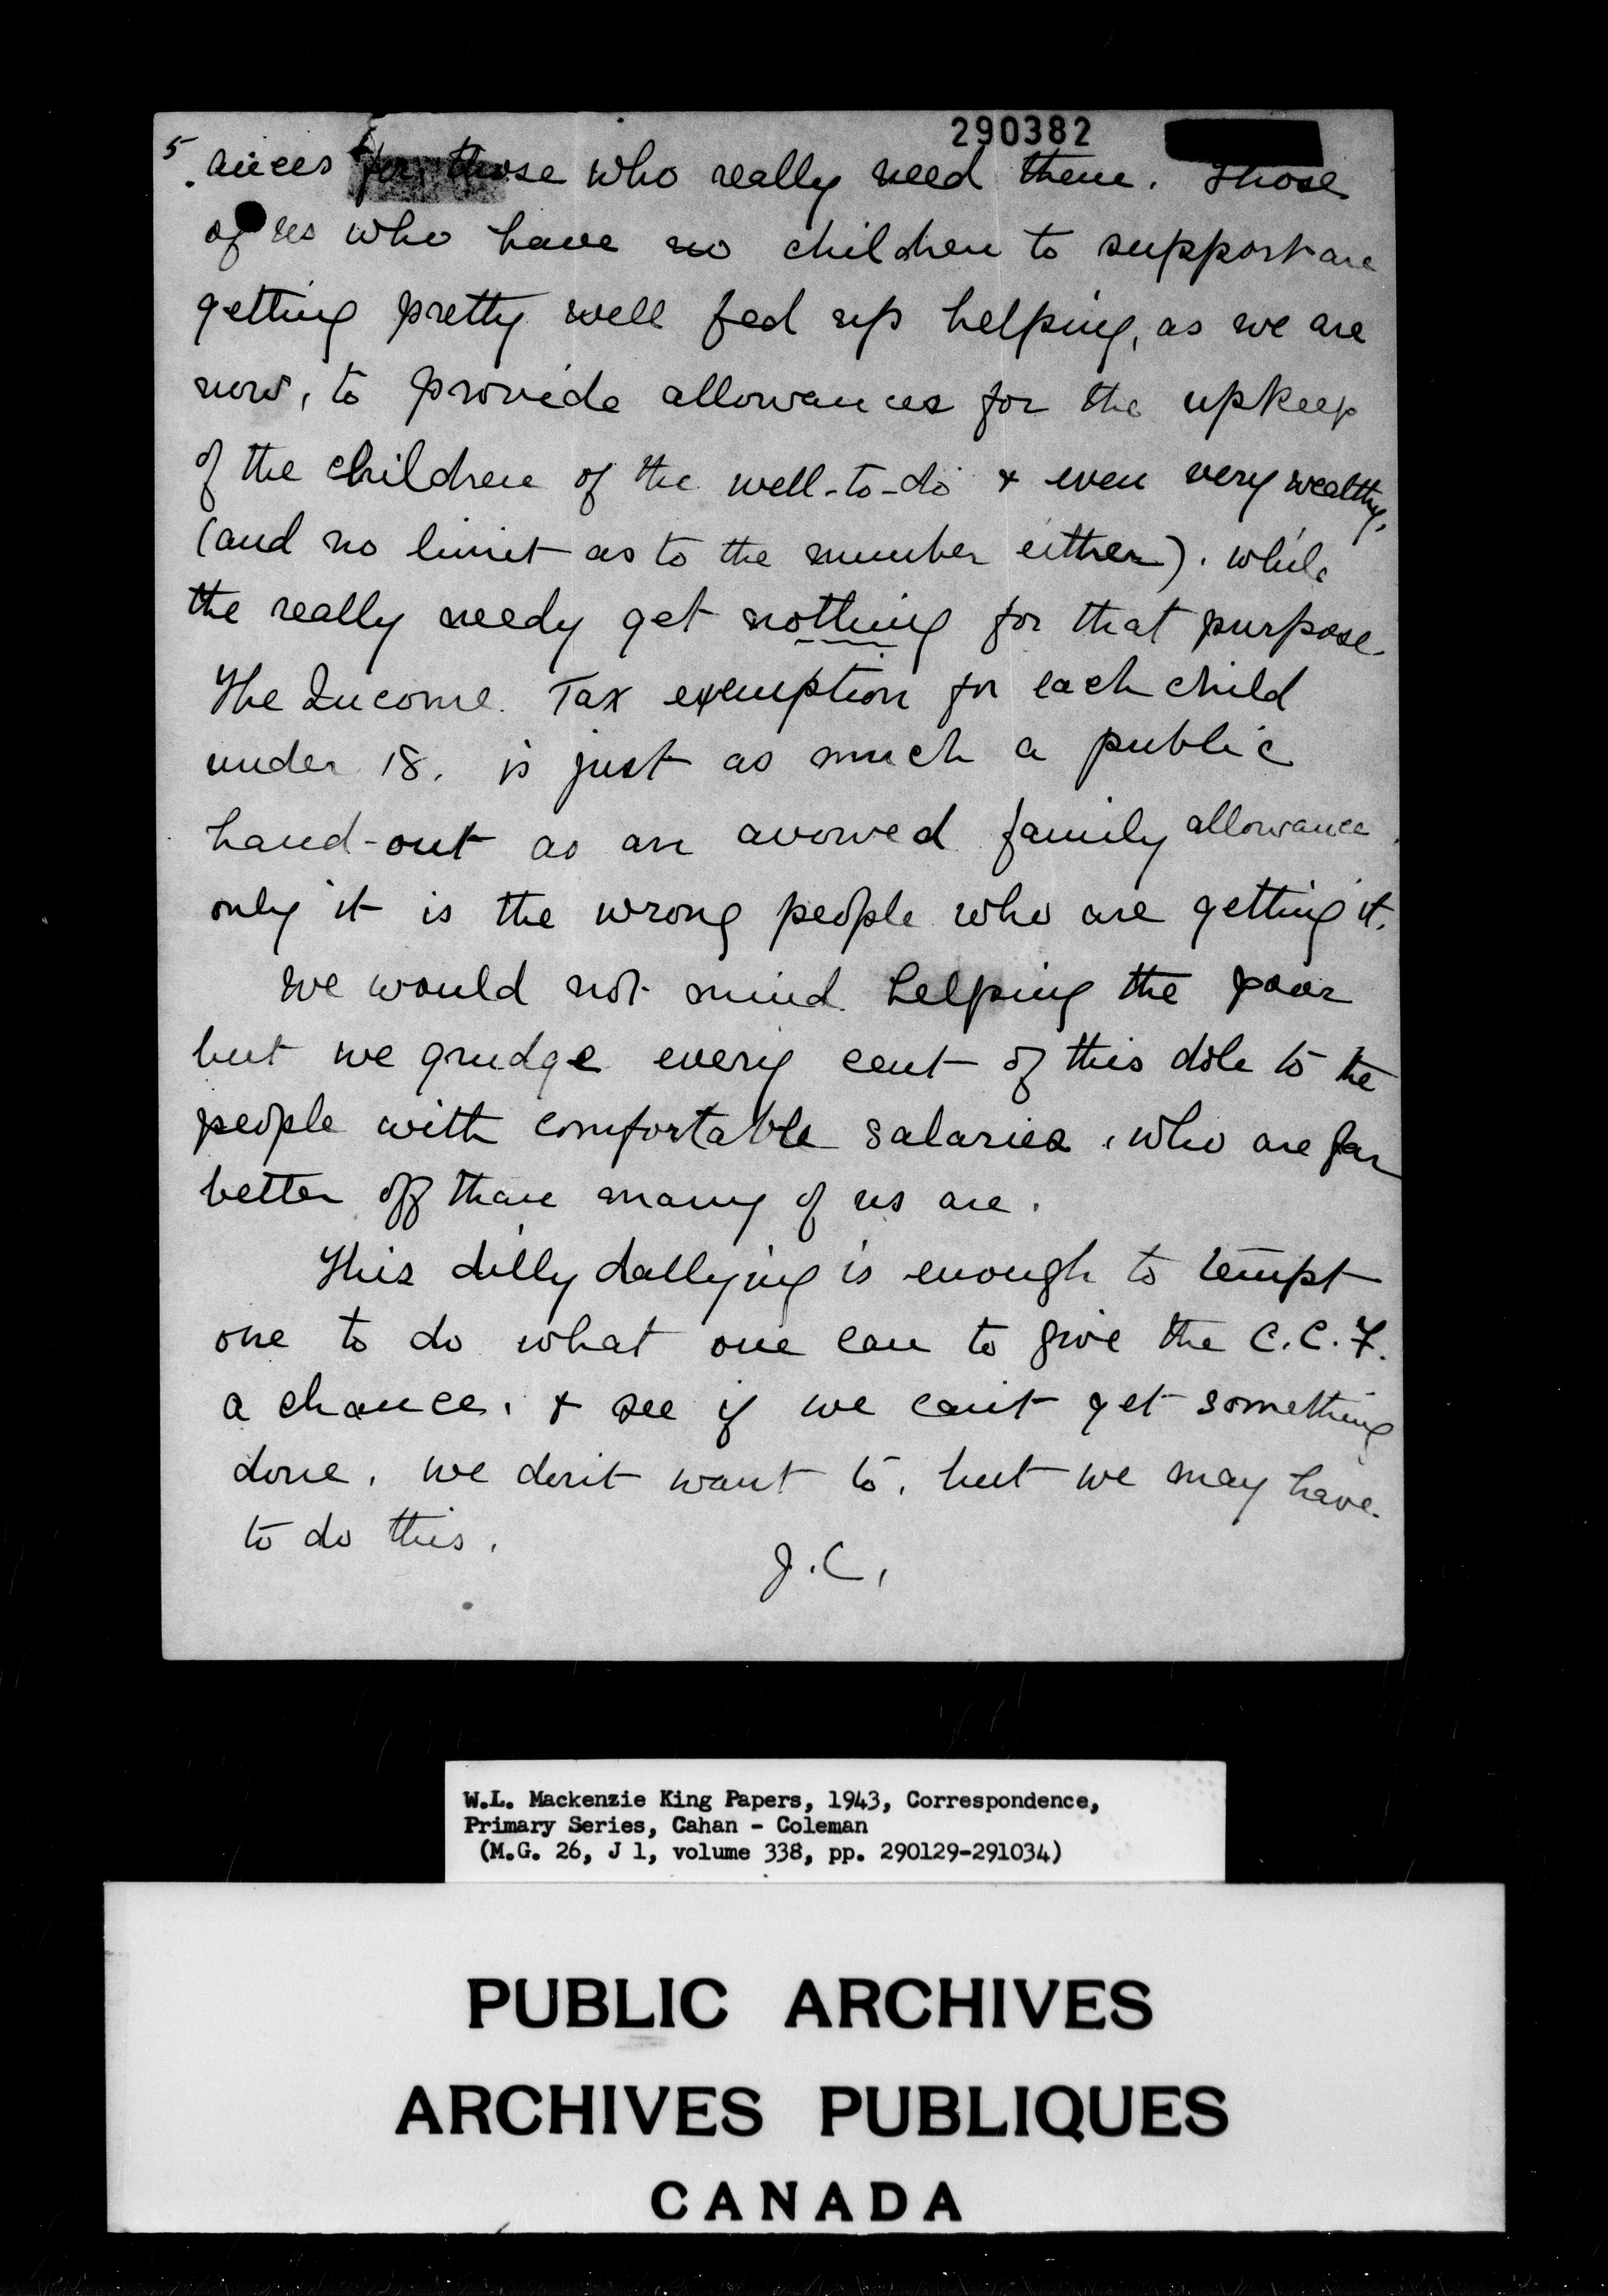 290382
5
ances for those who really need them. Those
of us who have no children to support are
getting pretty well fed up helping, as we are
now, to provide allowances for the upkeep
of the children of the well-to-do & even very wealthy,
(and no limit as to the number either). while
the really needy get nothing for that purpose.
The Income Tax exemption for each child
under 18, is just as much a public
hand-out as an avowed family allowance,
only it is the wrong people who are getting it.
We would not mind helping the poor
but we grudge every cent of this dole to the
people with comfortable salaries, who are far
better off than many of us are.
This dilly dallying is enough to tempt
one to do what one can to give the C.C.F.
a chance, & see if we can't get something
done. We don't want to, but we may have
to do this.
J.C.
W.L. Mackenzie King Papers, 1943, Correspondence,
Primary Series, Cahan - Coleman
(M.G. 26, J 1, volume 338, pp. 290129-291034)
PUBLIC ARCHIVES
ARCHIVES PUBLIQUES
CANADA